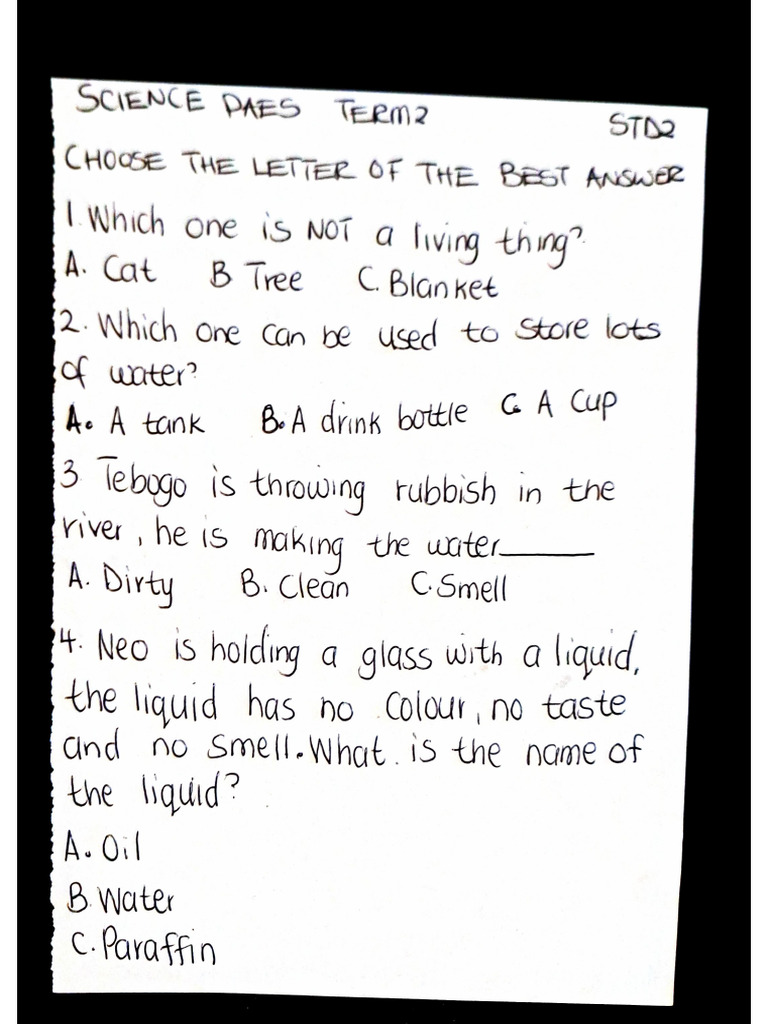 SCIENCE PAES TERM2
STD2
CHOOSE THE LETTER OF THE BEST ANSWER
1. Which one is NOT a living thing?
A. Cat B Tree C. Blanket
2. Which one can be used to store lots
of water?
A. A tank B. A drink bottle C. A Cup
3 Tebogo is throwing rubbish in the
river, he is making the water______
A. Dirty B. Clean C. Smell
4. Neo is holding a glass with a liquid,
the liquid has no colour, no taste
and no smell. What is the name of
the liquid?
A. Oil
B. Water
C. Paraffin